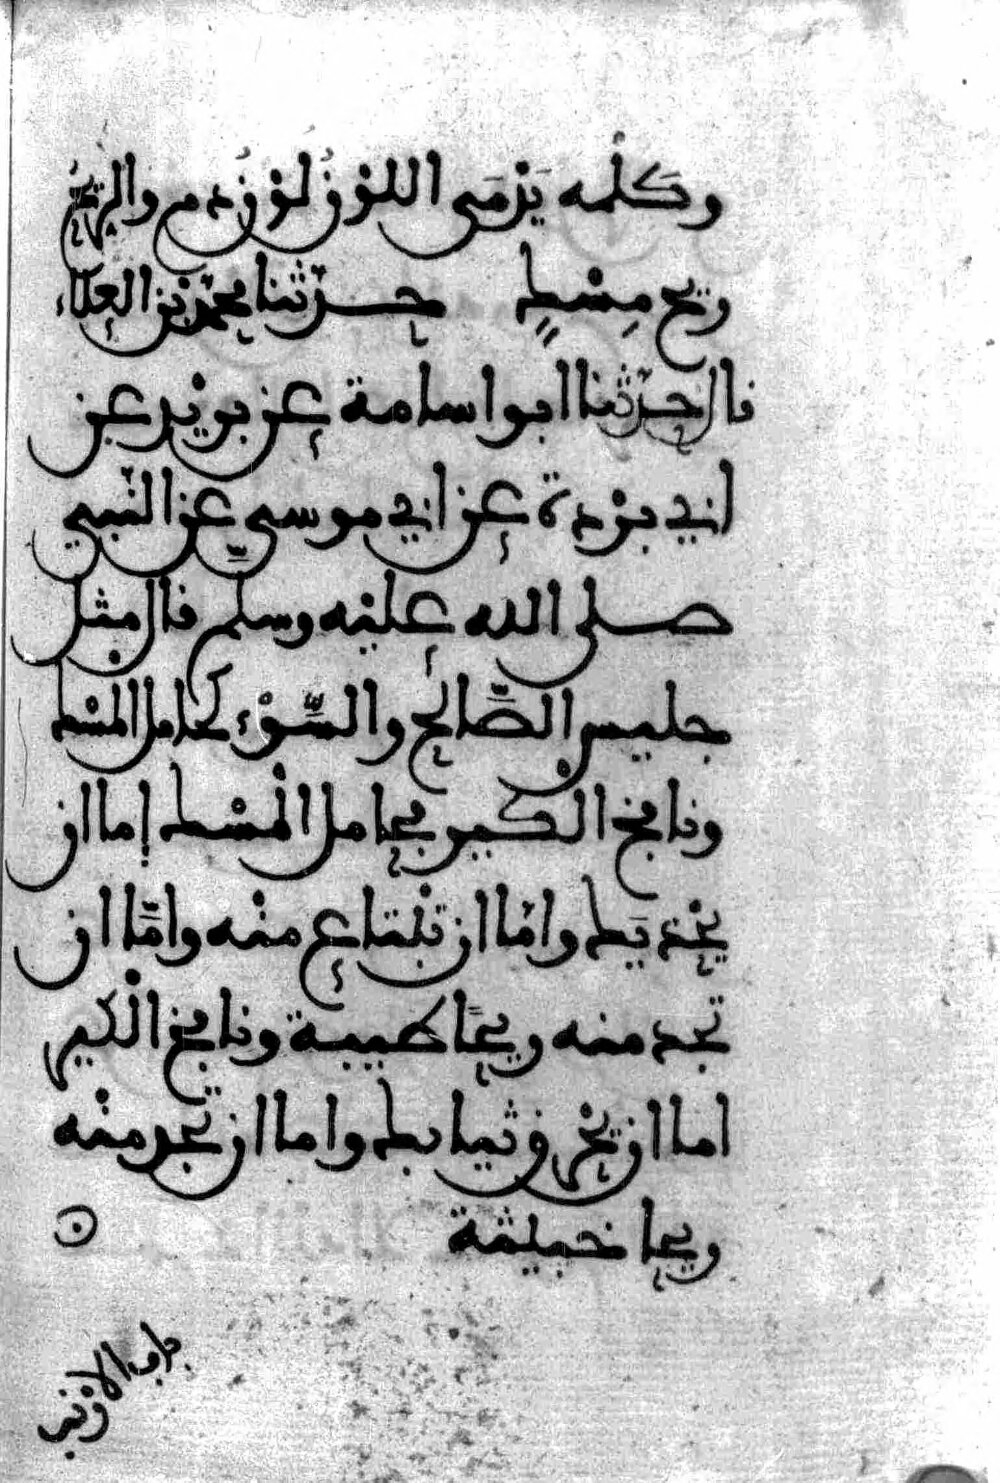 وكلمه يدمى اللون لون دم والريح
ريح مسك حدثنا محمد بن العلاء
قال حدثنا ابو اسامة عن بريد عن
ابي بردة عن ابي موسى عن النبي
صلى الله عليه وسلم قال مثل
جليس الصالح والسوء كحامل المسك
ونافخ الكير فحامل المسك إما ان
يحذيك واما ان تبتاع منه واما ان
تجد منه ريحا طيبة ونافخ الكير
اما ان يحرق ثيابك واما ان تجد منه
ريحا خبيثة
باب الارنب